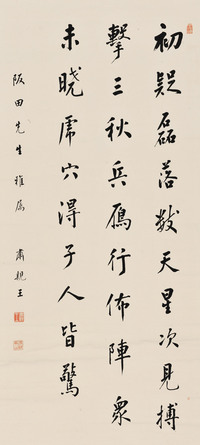 初疑磊落數天星次見搏
擊三秋兵鴈行佈陣衆
未曉虎穴得子人皆驚
阪田先生雅屬 肅親王